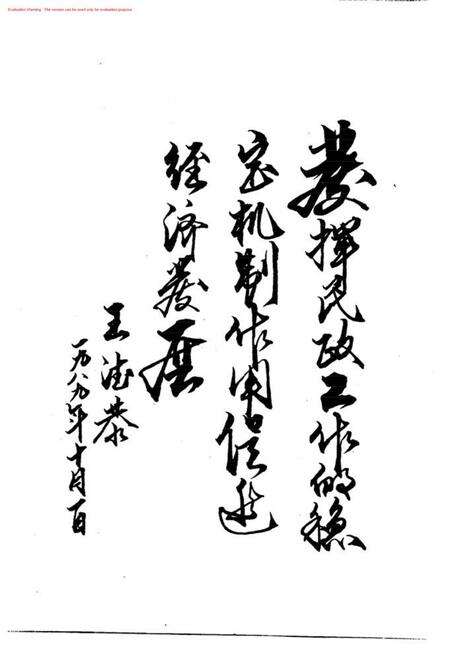 Evaluation Warning : The version can be used only for evaluation purpose
發揮民政工作的穩
定机制作用促進
經济發展
王德恭
一九八九年十月一日